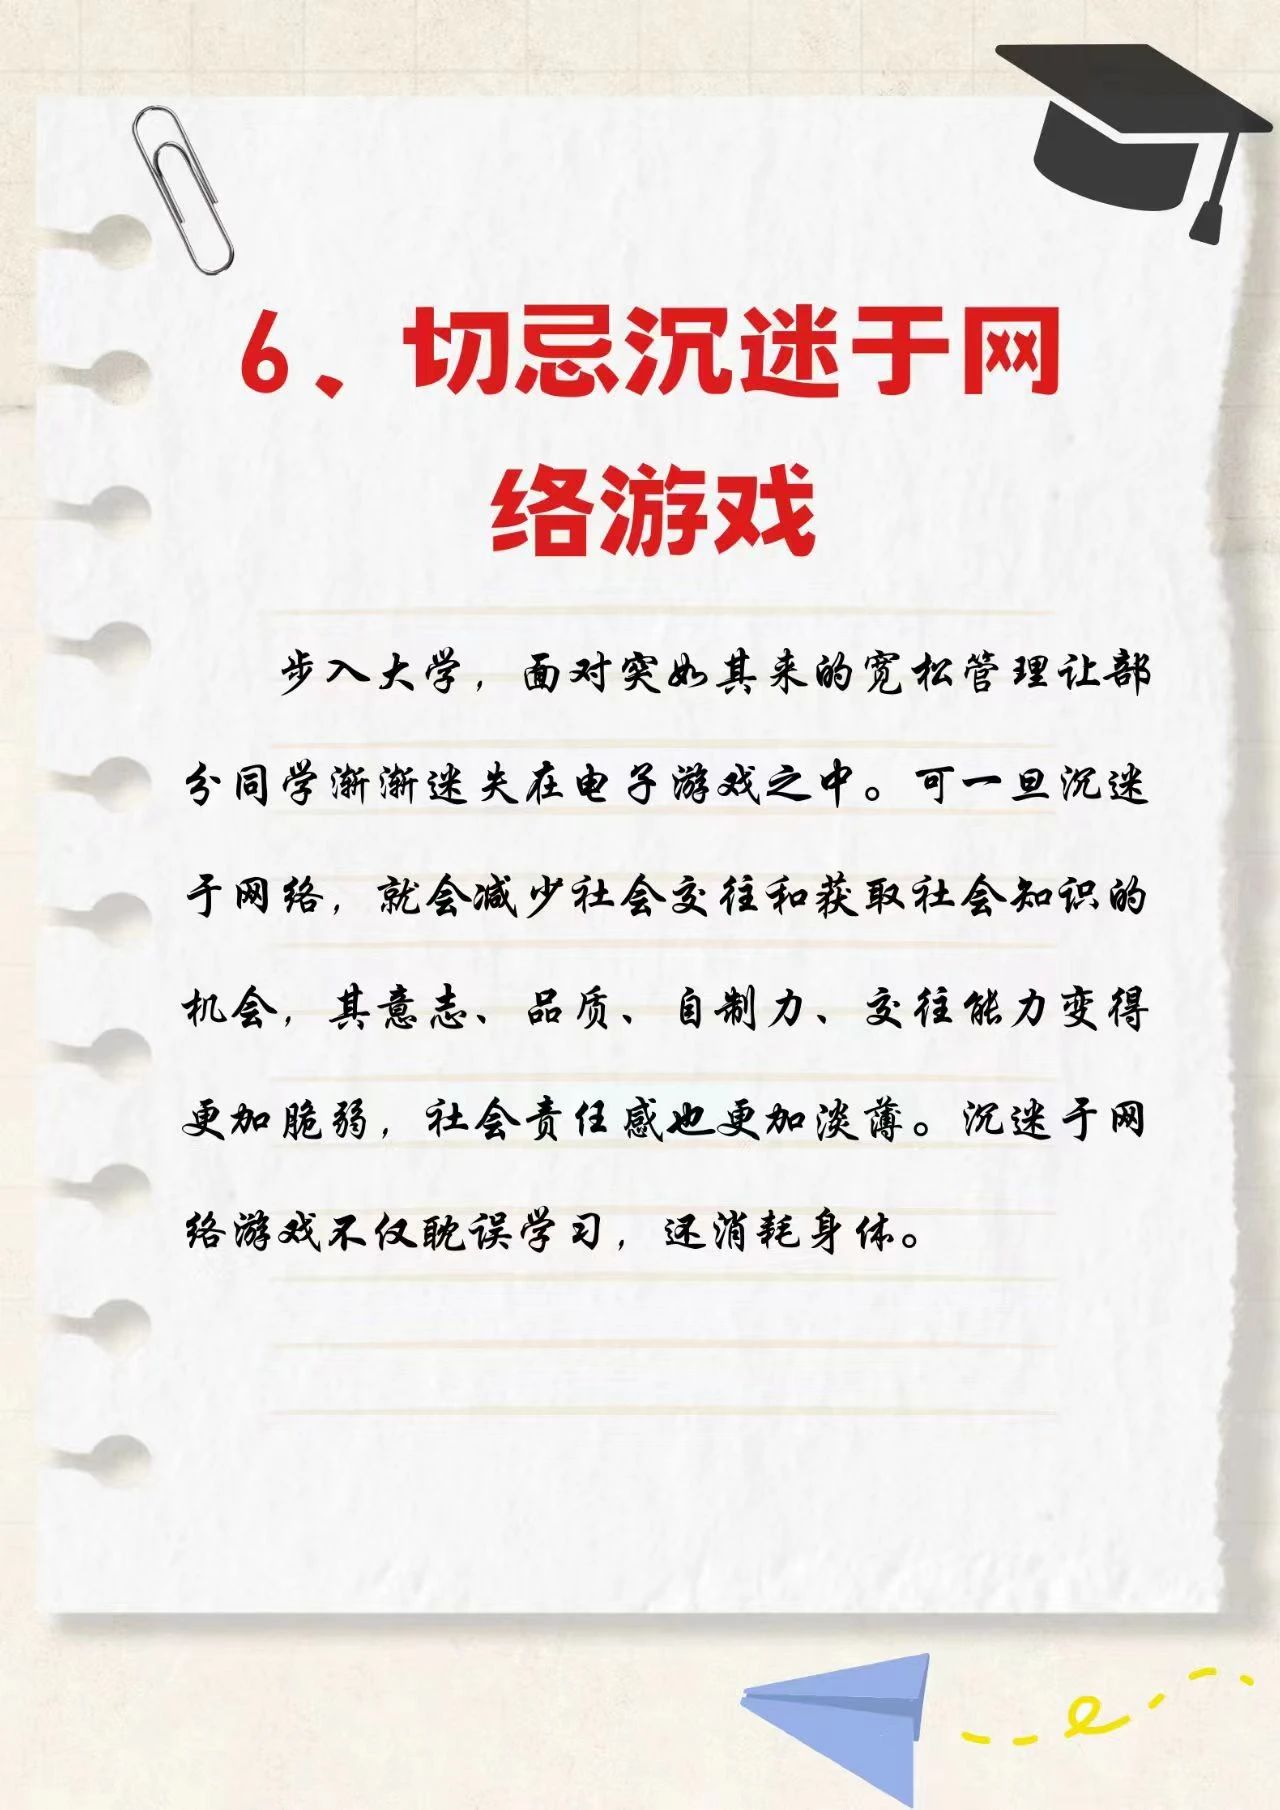 6、切忌沉迷于网
络游戏
步入大学，面对突如其来的宽松管理让部
分同学渐渐迷失在电子游戏之中。可一旦沉迷
于网络，就会减少社会交往和获取社会知识的
机会，其意志、品质、自制力、交往能力变得
更加脆弱，社会责任感也更加淡薄。沉迷于网
络游戏不仅耽误学习，还消耗身体。